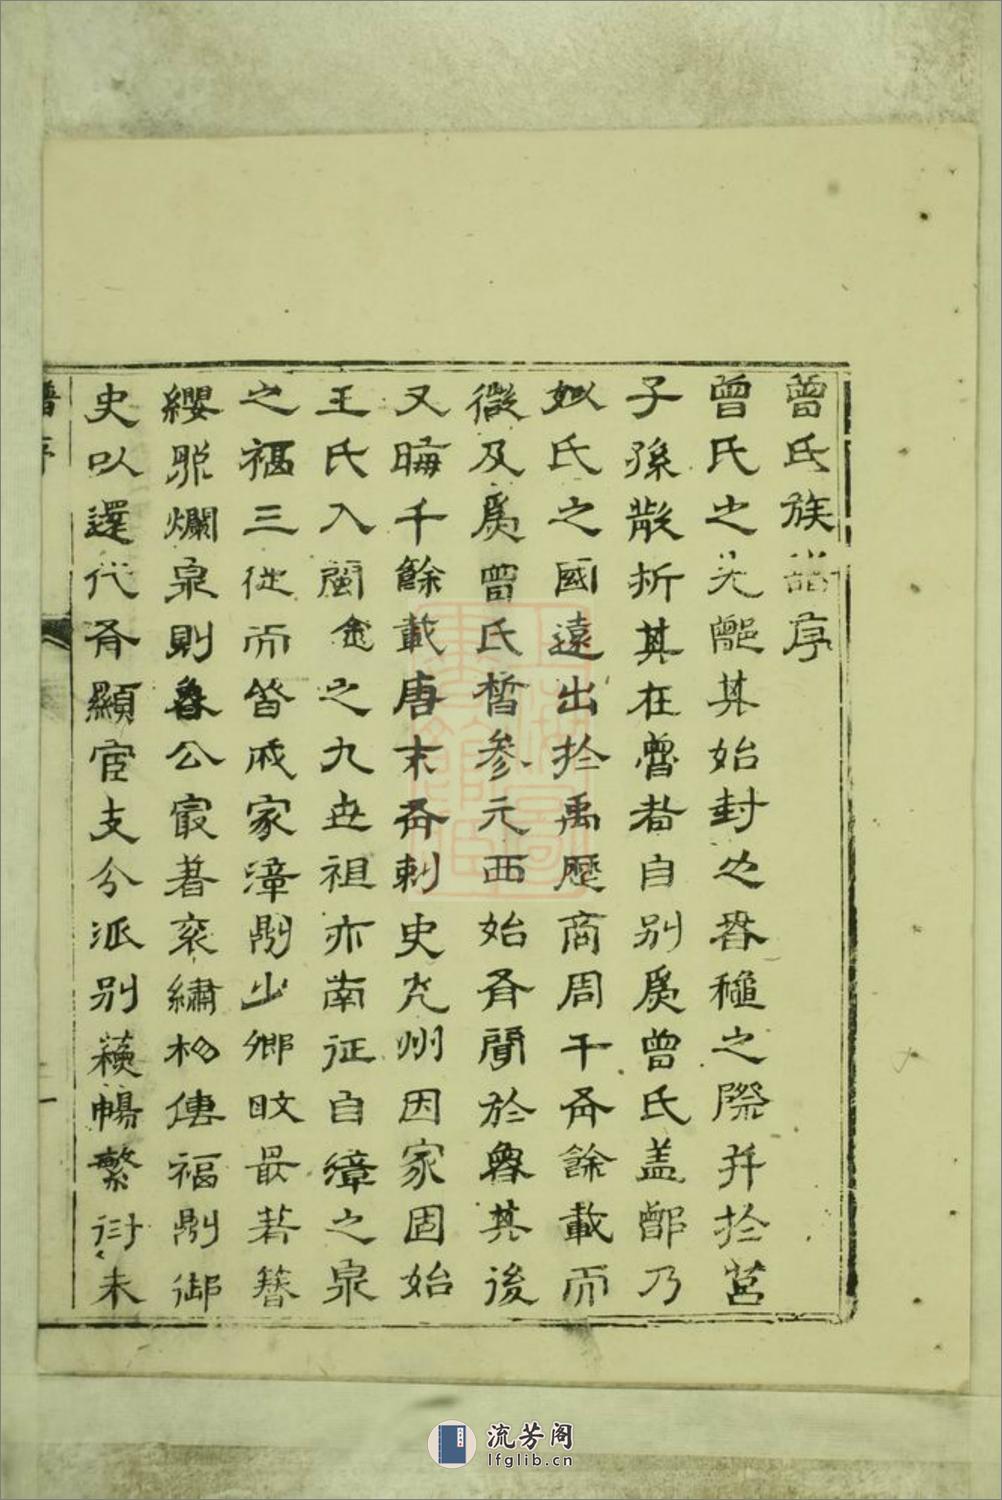 曾氏族譜序
曾氏之先鄫其始封也春穐之際并扵莒
子孫散折其在魯者自别爲曾氏盖鄫乃
姒氏之國遠出扵禹歷商周千有餘載而
微及爲曾氏晳参元西始有聞於魯其後
又晦千餘載唐末有刺史光州因家固始
王氏入閩金之九世祖亦南征自漳之泉
之福三從而皆成家漳則少卿旼最著簪
纓聮爛泉則魯公宼著衮繡相傳福則御
史以還代有顯宦支分派别蕃暢繁衍未
譜序
一
流芳阁
lfglib.cn